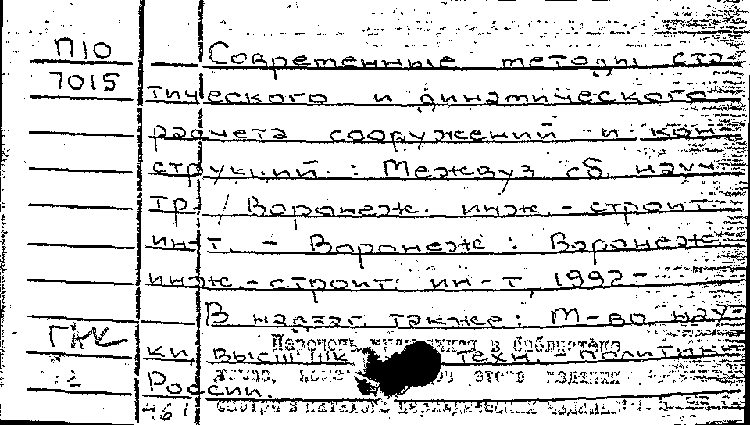 П10
7015
Современные методы ста-
тического и динамического
расчета сооружений и кон-
струкций : Межвуз сб. науч
тр / Воронеж. инж.-строит.
ин-т. - Воронеж : Воронеж
инж-строит. ин-т, 1992-
В надзаг. также: М-во нау-
ки, высш. шк. техн. политики
России.
Перечень имеющихся в библиотеке
этого издания
смотри в каталоге периодических изданий
461